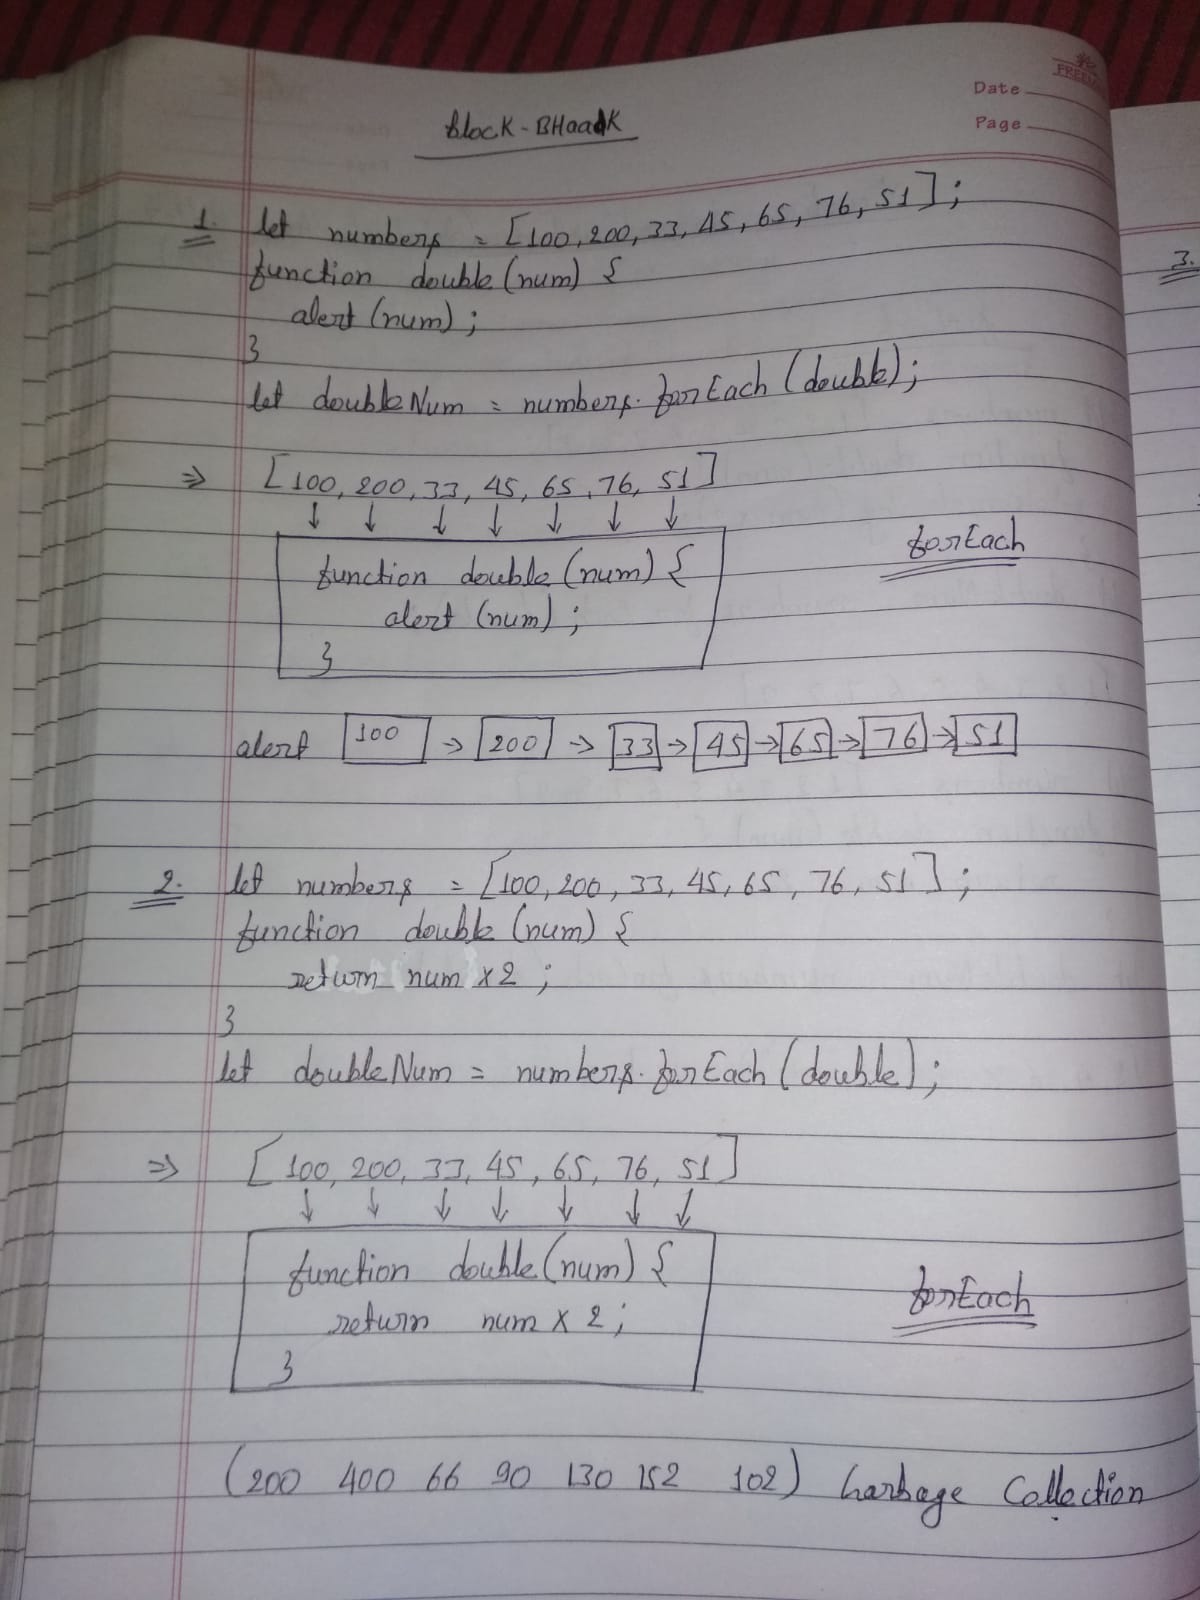 Date
Page
Block-BHaadK
1. let numbers = [100, 200, 33, 45, 65, 76, 51];
function double (num) {
alert (num);
}
let doubleNum = numbers.forEach (double);
⇒ [100, 200, 33, 45, 65, 76, 51]
↓ ↓ ↓ ↓ ↓ ↓ ↓
function double (num) {
alert (num);
}
forEach
alert 100 → 200 → 33 → 45 → 65 → 76 → 51
2. let numbers = [100, 200, 33, 45, 65, 76, 51];
function double (num) {
return num x 2;
}
let doubleNum = numbers.forEach (double);
⇒ [100, 200, 33, 45, 65, 76, 51]
↓ ↓ ↓ ↓ ↓ ↓ ↓
function double (num) {
return num x 2;
}
forEach
(200 400 66 90 130 152 102) Garbage Collection
3.